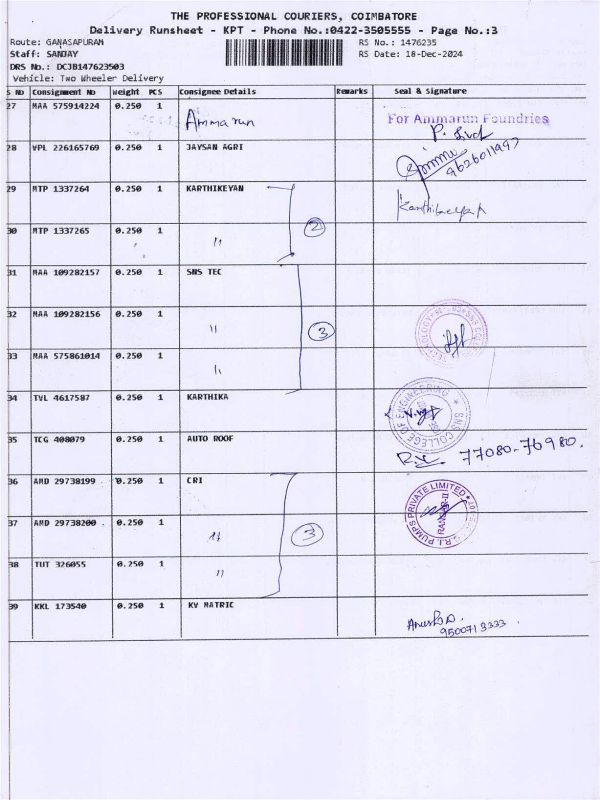 THE PROFESSIONAL COURIERS, COIMBATORE
Delivery Runsheet - KPT - Phone No.:0422-3505555 - Page No.:3
Route: GANASAPURAM RS No.: 1476235
Staff: SANJAY RS Date: 18-Dec-2024
DRS No.: DCJB147623503
Vehicle: Two Wheeler Delivery
S No Consignment No Weight PCS Consignee Details Remarks Seal & Signature
27 MAA 575914224 0.250 1 Ammarun For Ammarun Foundries
28 VPL 226165769 0.250 1 JAYSAN AGRI 9626011997
29 MTP 1337264 0.250 1 KARTHIKEYAN Karthikeyan
30 MTP 1337265 0.250 1 " 2
31 MAA 109282157 0.250 1 SNS TEC
32 MAA 109282156 0.250 1 " 3
33 MAA 575861014 0.250 1 "
34 TVL 4617587 0.250 1 KARTHIKA SNS COLLEGE OF ENGINEERING
35 TCG 408079 0.250 1 AUTO ROOF 77080-76980.
36 AMD 29738199 0.250 1 CRI C.R.I. PUMPS PRIVATE LIMITED
37 AMD 29738200 0.250 1 " 3
38 TUT 326055 0.250 1 "
39 KKL 173540 0.250 1 KV MATRIC
9500713333